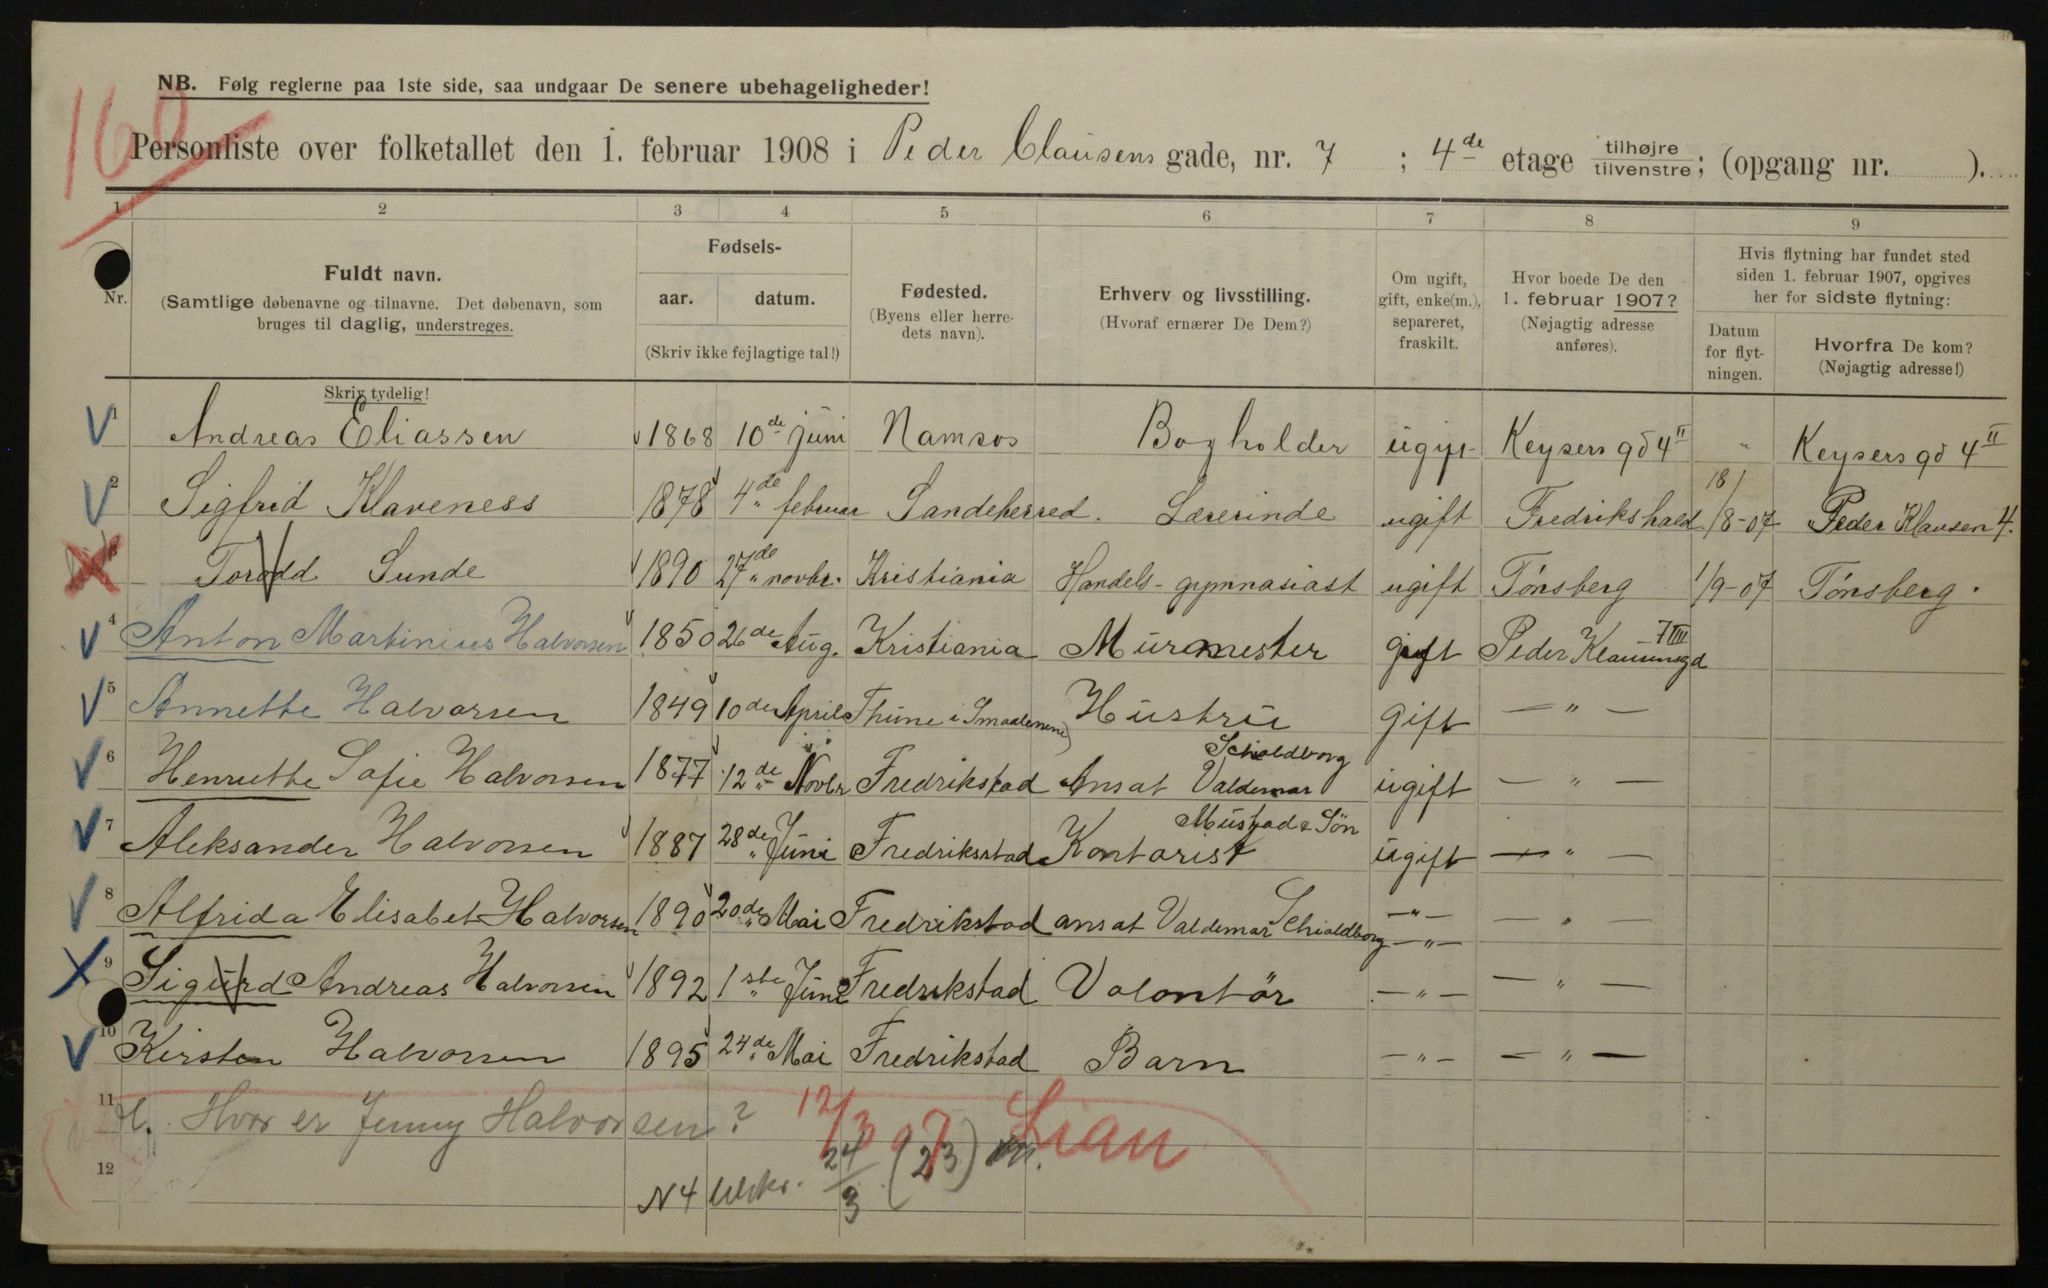 160
NB. Følg reglerne paa 1ste side, saa undgaar De senere ubehageligheder!
Personliste over folketallet den 1. februar 1908 i Peder Clausens gade, nr. 7 ; 4de etage tilhøjre tilvenstre; (opgang nr. ).
1 2 3 4 5 6 7 8 9
Nr.
Fuldt navn.
(Samtlige døbenavne og tilnavne. Det døbenavn, som
bruges til daglig, understreges.
Fødsels-
aar. datum.
(Skriv ikke fejlagtige tal!)
Fødested.
(Byens eller herre-
dets navn).
Erhverv og livsstilling.
(Hvoraf ernærer De Dem?)
Om ugift,
gift, enke(m.),
separeret,
fraskilt.
Hvor boede De den
1. februar 1907?
(Nøjagtig adresse
anføres).
Hvis flytning har fundet sted
siden 1. februar 1907, opgives
her for sidste flytning:
Datum
for flyt-
ningen.
Hvorfra De kom?
(Nøjagtig adresse!)
Skriv tydelig!
1 Andreas Eliassen 1868 10de juni Namsos Bogholder ugift Keysers gd 4 II " Keysers gd 4 II
2 Sigfrid Klaveness 1878 4de februar Sandeherred. Lærerinde ugift Fredrikshald 18/ 1/8-07 Peder Klausen 4.
3 Torodd Sunde 1890 27de novbr. Kristiania Handels-gymnasiast ugift Tónsberg 1/9-07 Tónsberg.
4 Anton Martinius Halvorsen 1850 26de Aug. Kristiania Murmester gift Peder Klausensgd 7 III
5 Annette Halvorsen 1849 10de April Thrne i Smaalenene Hustru gift — " —
6 Henriette Sofie Halvorsen 1877 12de Novbr Fredrikstad Ansat Valdemar Schioldborg ugift — " —
7 Aleksander Halvorsen 1887 28de Juni Fredriksstad Kontorist Mustad & Sön ugift — " —
8 Alfrida Elisabet Halvorsen 1890 20de Mai Fredrikstad ansat Valdemar Schioldborg —"— — " —
9 Sigurd Andreas Halvorsen 1892 1ste Juni Fredrikstad Volontör —"— — " —
10 Kirsten Halvorsen 1895 24de Mai Fredrikstad Barn —"— — " —
11 Hvor er Jenny Halvorsen? 12/3 07 Lian
12
N4 24/3 (23)